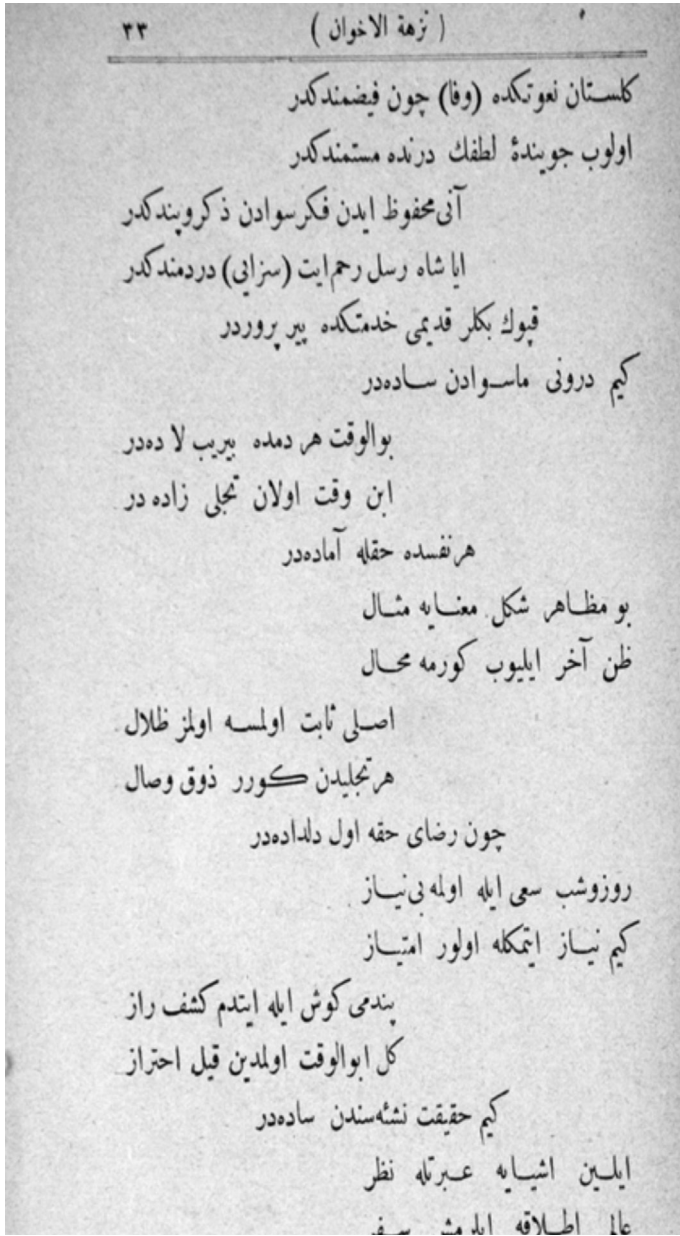 ( نزهة الاخوان ) ٣٣
كلستان نعوتكده (وفا) چون فيضمندكدر
اولوب جويندۀ لطفك درنده مستمندكدر
آنى محفوظ ايدن فكر سوادن ذكر وپندكدر
ايا شاه رسل رحم ايت (سزايى) دردمندكدر
قپوك بكلر قديمى خدمتكده پير پروردر
كيم درونى ماسوادن ساده‌در
بوالوقت هر دمده بيريب لا ده‌در
ابن وقت اولان تجلى زاده در
هر نفسده حقله آماده‌در
بو مظاهر شكل معنايه مثال
ظن آخر ايليوب كورمه محال
اصلى ثابت اولمسه اولمز ظلال
هر تجليدن كورر ذوق وصال
چون رضاى حقه اول دلداده‌در
روز وشب سعى ايله اوله بى نياز
كيم نياز ايتمكله اولور امتياز
پندمى كوش ايله ايتدم كشف راز
كل ابوالوقت اولمدين قيل احتراز
كيم حقيقت نشئه‌سندن ساده‌در
ايلسين اشيايه عبرتله نظر
عالم اطلاقه ايلرمش سفر